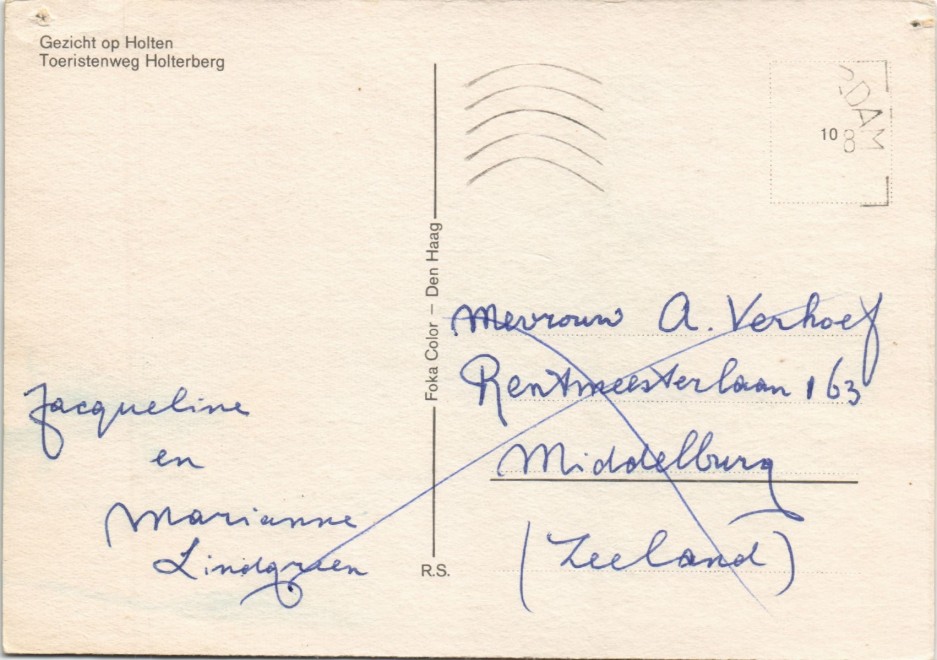 Gezicht op Holten
Toeristenweg Holterberg
RDAM
10 8
Foka Color – Den Haag
Mevrouw A. Verhoef
Rentmeesterlaan 163
Middelburg
(Zeeland)
Jacqueline
en
Marianne
Lindgreen
R.S.